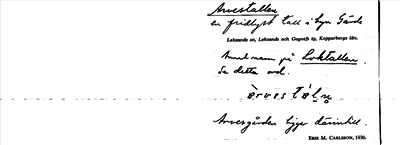 Arvestallen
en fridlyst tall i byn Gärde
Leksands sn, Leksands och Gagnefs tg, Kopparbergs län.
Annat namn på Loktallen.
Se detta ord.
Arvesgården ligger därintill.
ERIK M. CARLSSON, 1930.